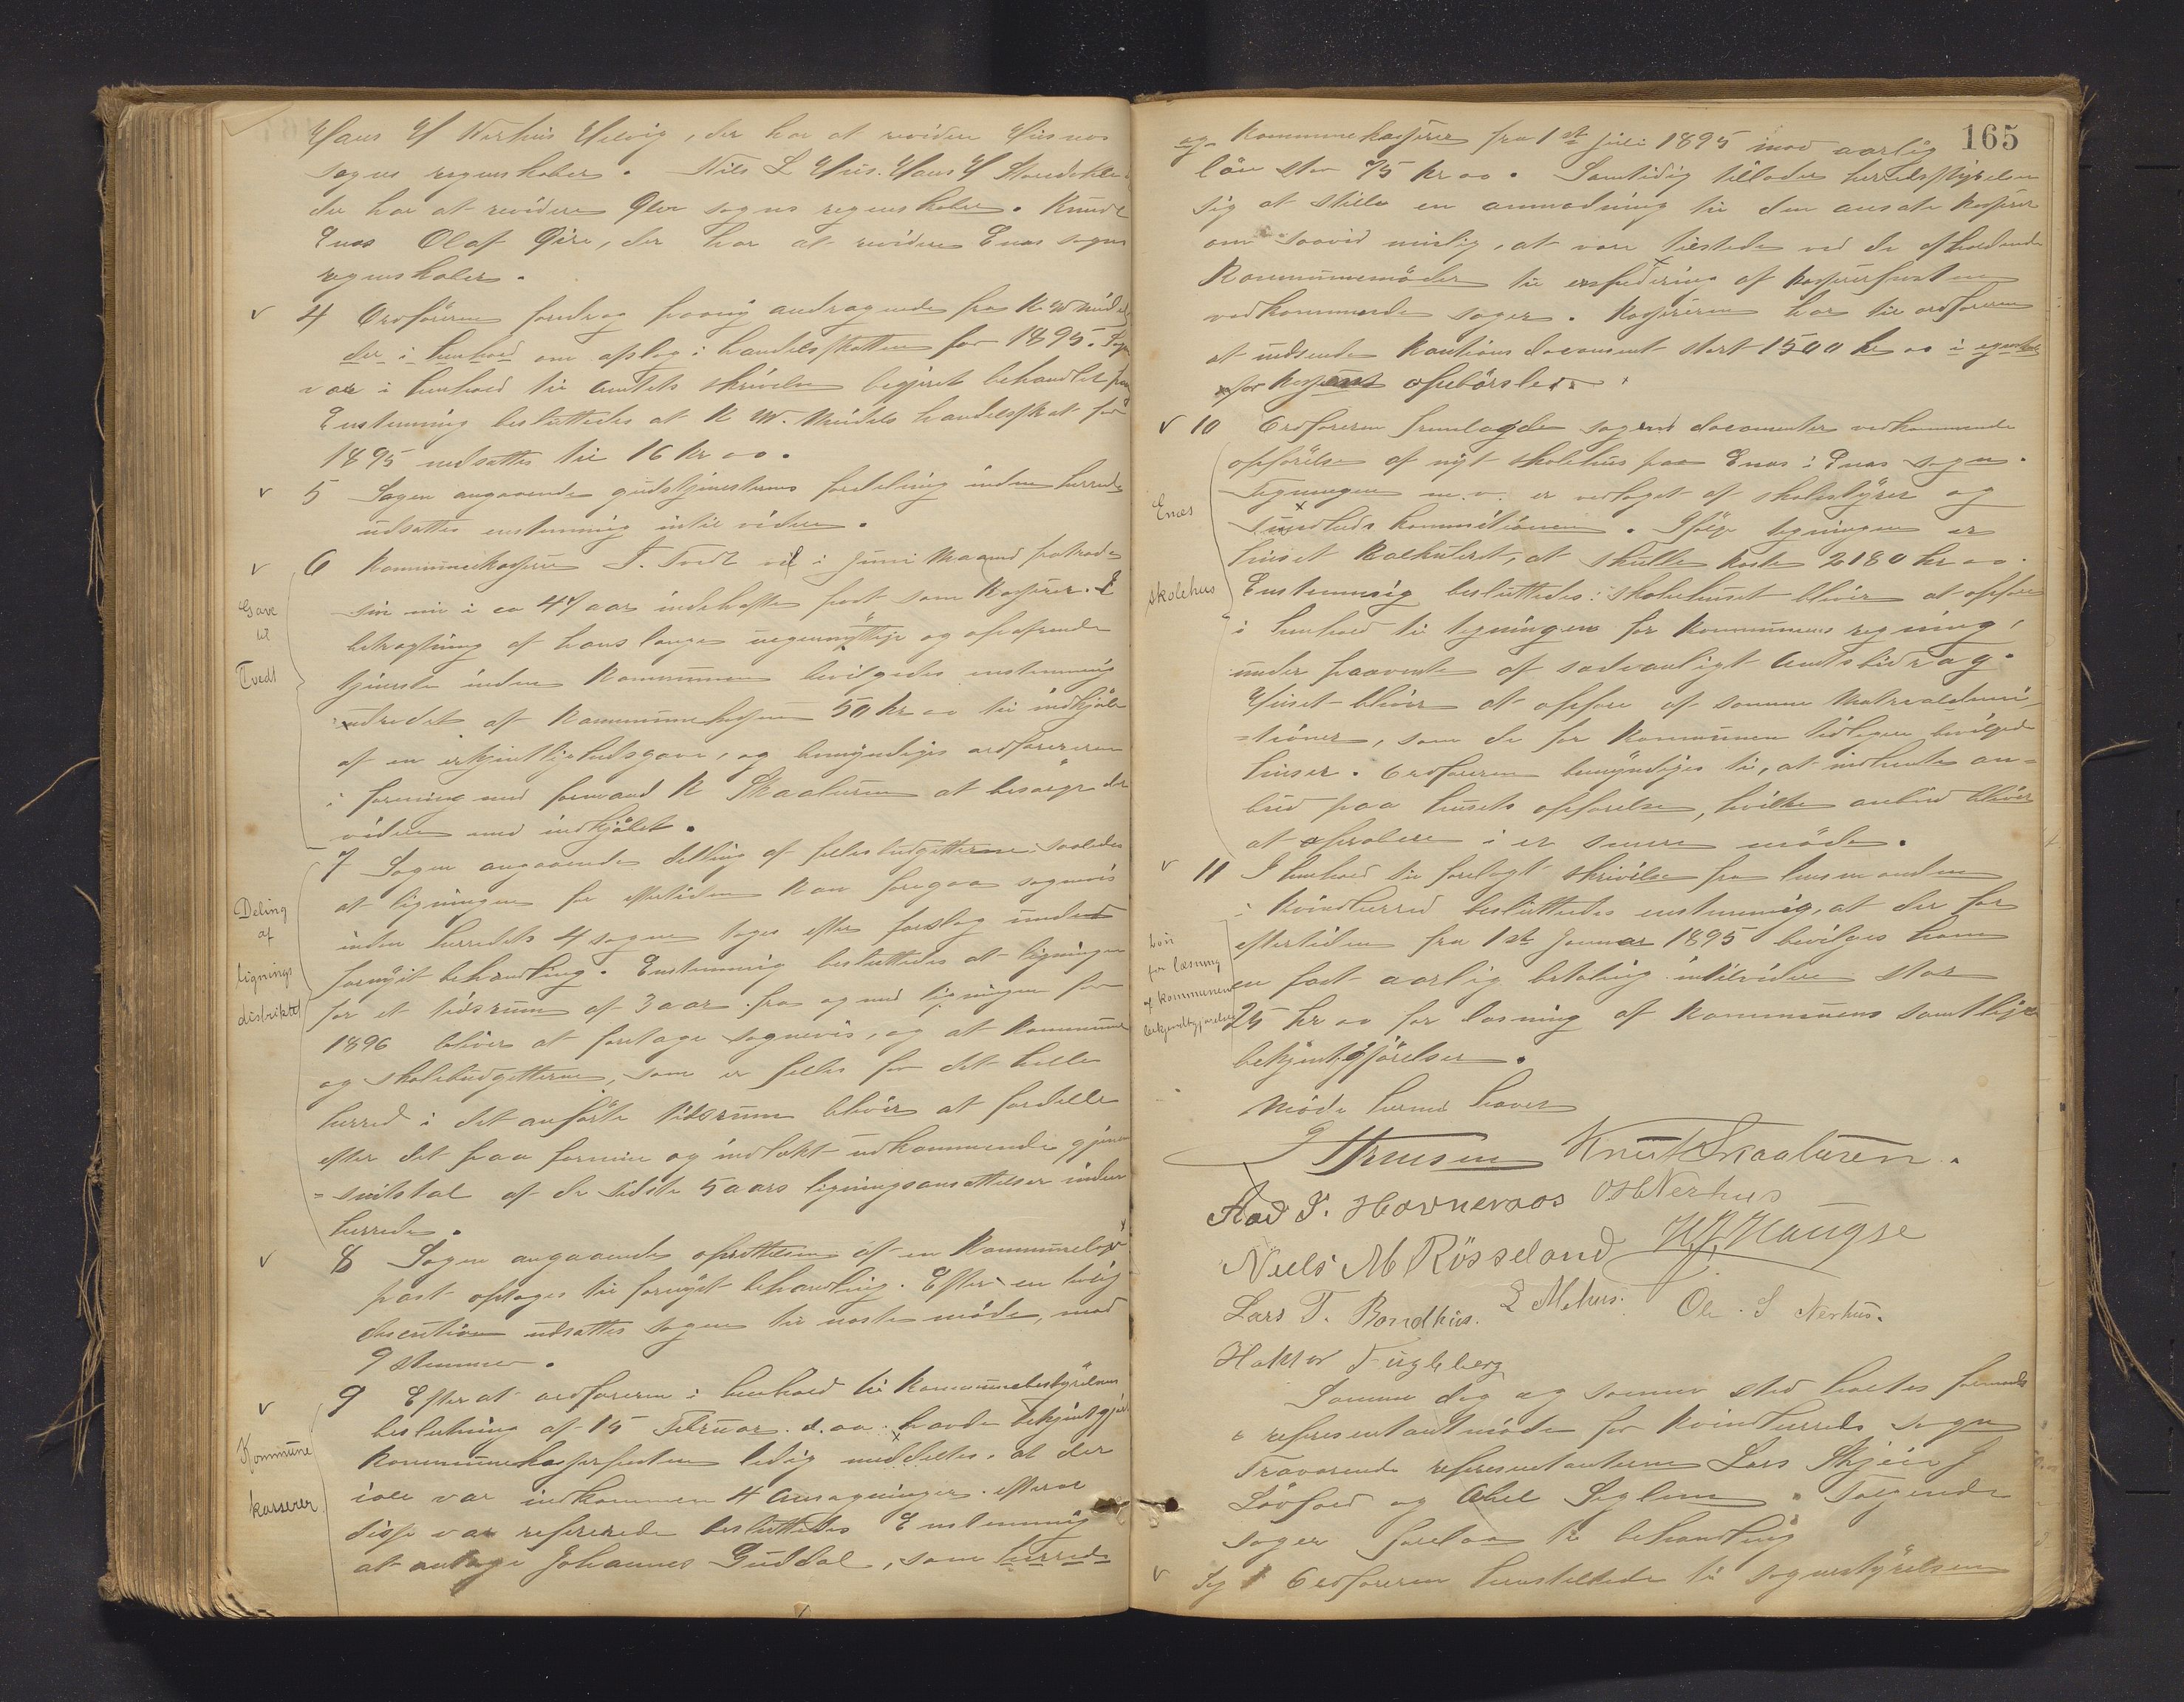 Hans H Nerhus Helvig, der har at revidere Husnes
sogns regnskaber. Nils L Hus. Hans H
der har at revidere Ølve sogns regnskaber. Knudt
Enæs Olaf Øire, der har at revidere Enæs sogns
regnskaber.
4 Ordføreren foredrog paany andragende fra K W
i henhold om afslag i handelsskatten for 1895. Sagen
var i henhold til Amtets skrivelse begjært behandlet paa
Enstemmig besluttedes at K W. handelsskat for
1895 nedsattes til 16 kr 00.
5 Sagen angaaende gudstjenesternes fordeling inden herredet
udsattes enstemmig intil videre.
Gave
til
Tvedt
6 Kommunekasserer J. Tvedt vil i Juni Maaned fratræde
sin nu i ca 47 aar indehafte post som Kasserer. I
betragtning af hans lange uegennyttige og opofrende
tjeneste inden Kommunen bevilgedes enstemmig
udredet af Kommunekassen 50 kr 00 til indkjøb
af en erkjentlighedsgave, og bemyndiges ordføreren
i forening med formand K Skaaluren at besørge det
videre med indkjøbet.
Deling
af
lignings
distriktet
7 Sagen angaaende deling af fellesbudgetterne saaledes
at ligningen for eftertiden kan foregaa sognevis
inden herredets 4 sogne toges efter forslag under
fornyet behandling. Enstemmig besluttedes at ligningen
for et tidsrum af 3 aar fra og med ligningen for
1896 bliver at foretage sognevis, og at kommune
og skolebudgetterne, som er felles for det hele
herred i det anførte tidsrum bliver at fordele
efter det paa formue og indtækt udkommende gjennem
=snitstal af de sidste 5 aars ligningsansættelser inden
herredet.
8 Sagen angaaende oprettelsen af en Kommunelæge
post optoges til fornyet behandling. Efter en livlig
discution udsattes sagen til næste møde, mod
9 stemmer.
Kommune
kasserer
9 Efter at ordføreren i henhold til Kommunebestyrelsens
beslutning af 15 Februar d. aa. havde bekjentgjort
kommunekasserposten ledig meddeltes, at der
ialt var indkommen 4 Ansøgninger. efterat
disse var refererede besluttedes Enstemmig
at antage Johannes Guddal, som herreds
165
og Kommunekasserer fra 1ste Juli 1895 mod aarlig
løn stor 75 kr 00. Samtidig tillader herredsstyrelsen
sig at stille en anmodning til den ansatte kasserer
om saavid mulig, at være tilstede ved de afholdende
Kommunemøder til expedering af kassererposten
vedkommende sager. Kassereren har til ordføreren
at indsende Kautions document stort 1500 kr 00
for oppebørsler.
Enæs
skolehus
10 Ordføreren fremlagde sagens documenter vedkommende
opførelse af nyt skolehus paa Enæs i Enæs sogn.
Tegningen m. v. er vedtaget af skolestyrer og
sundheds kommisionen. Ifølge tegningen er
huset kalkuleret, at skulle koste 2180 kr 00.
Enstemmig besluttedes: skolehuset bliver at opføre
i henhold til tegningen for Kommunens regning,
under paavente af sædvanligt Amtsbidrag.
Huset bliver at opføre af samme Matrealdimi
=tioner, som de for Kommunen tidligere bevilgede
huser. Ordføreren bemyndiges til, at indhente an=
bud paa husets opførelse, hvilke anbud bliver
at aprobere i et senere møde.
Løn
for læsning
af kommunens
bekjendtgjørelser
11 I henhold til forelagt skrivelse fra lensmanden
i Kvindherred besluttedes enstemmig, at der for
eftertiden fra 1ste Januar 1895 bevilges ham
en fast aarlig betaling intilvidere stor
25 kr 00 for læsning af Kommunens samtlige
bekjentgjørelser.
Møde hermed hævet
G Thuesen Knut Skaaluren.
Aad J. Havnevaas O H Nerhus
Niels M Røsseland H J Haugse
Lars T. Bondhus. L Mehus. Ole S Nerhus.
Haktor Fugleberg
Samme dag og samme sted holtes formands
& representantmøde for Kvindherreds sogn
Fraværende representanterne Lars Skjeie J
Løfald og Abel Seglem. Følgende
sager forelaa til behandling
Sag 1 Ordføreren henstillede til sognestyrelsen